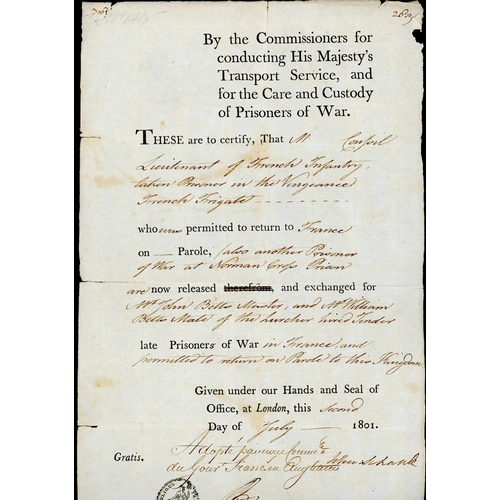 2639
By the Commissioners for
conducting His Majesty's
Transport Service, and
for the Care and Custody
of Prisoners of War.
THESE are to certify, That M Conseil
Lieutenant of French Infantry
taken Prisoner in the Vengeance
French Frigate
who were permitted to return to France
on Parole, (also another Prisoner
of War at Norman Cross Prison
are now released therefrom, and exchanged for
Mr. John Betts Master, and Mr. William
Betts Mate of the Lurcher hired Tender
late Prisoners of War in France, and
permitted to return on Parole to this Kingdom
Given under our Hands and Seal of
Office, at London, this second
Day of July 1801.
Adopté par
Gratis. du Gouv. Francais John Schank